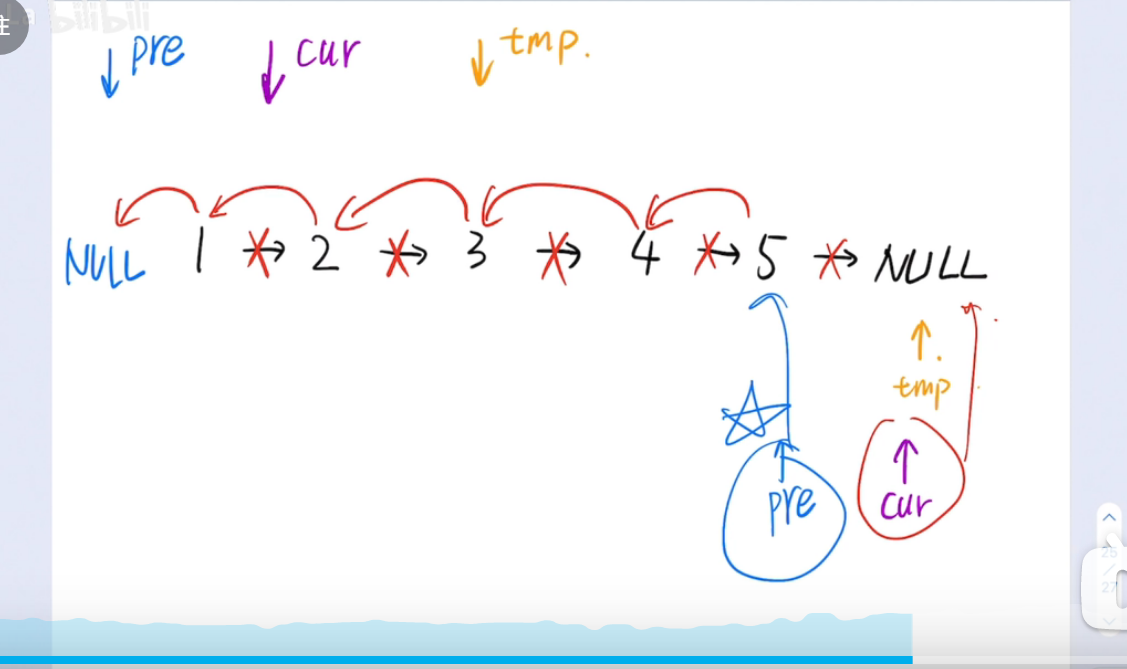 注
bilibili
pre cur tmp.
NULL 1 2 3 4 5 NULL
tmp
pre cur
25
/
27